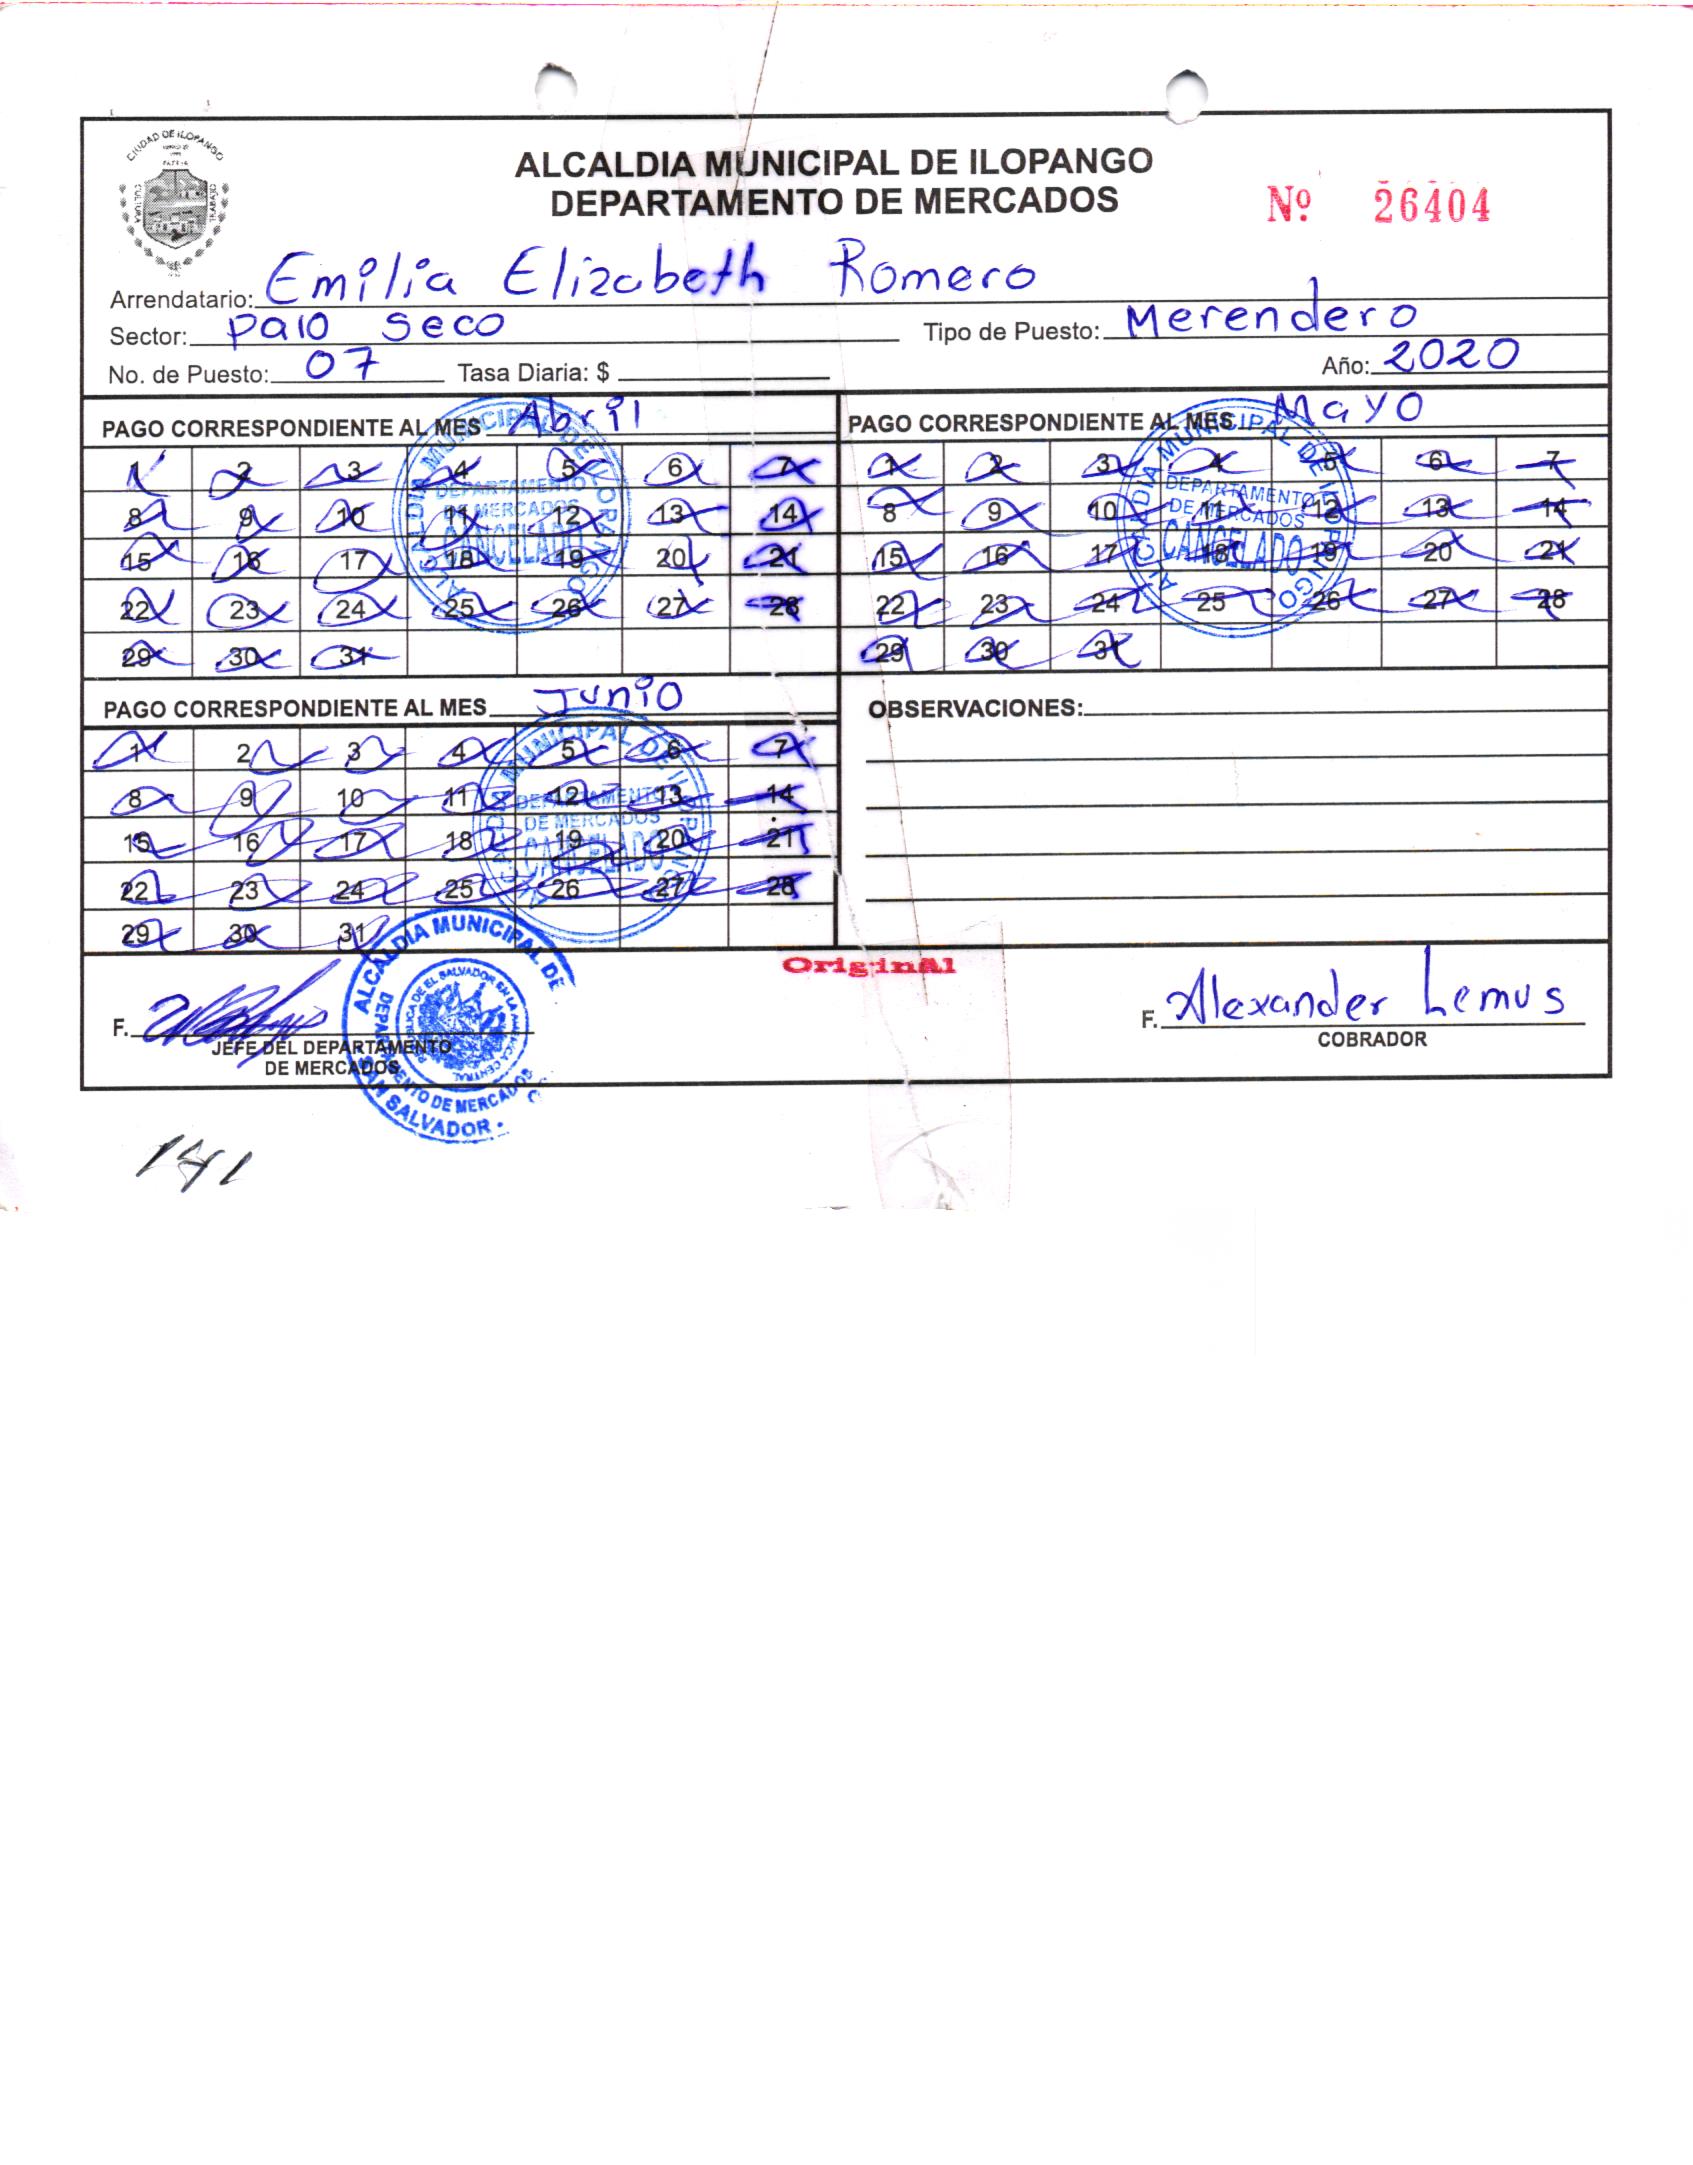 CIUDAD DE ILOPANGO
CULTURA
TRABAJO
ALCALDIA MUNICIPAL DE ILOPANGO
DEPARTAMENTO DE MERCADOS
Nº 26404
Arrendatario: Emilia Elizabeth Romero
Sector: palo seco Tipo de Puesto: Merendero
No. de Puesto: 07 Tasa Diaria: $ Año: 2020
PAGO CORRESPONDIENTE AL MES Abril
1 2 3 4 5 6 7
8 9 10 11 12 13 14
15 16 17 18 19 20 21
22 23 24 25 26 27 28
29 30 31
ALCALDIA MUNICIPAL DE ILOPANGO
DEPARTAMENTO
DE MERCADOS
CANCELADO
PAGO CORRESPONDIENTE AL MES Mayo
1 2 3 4 5 6 7
8 9 10 11 12 13 14
15 16 17 18 19 20 21
22 23 24 25 26 27 28
29 30 31
ALCALDIA MUNICIPAL DE ILOPANGO
DEPARTAMENTO
DE MERCADOS
CANCELADO
PAGO CORRESPONDIENTE AL MES Junio
1 2 3 4 5 6 7
8 9 10 11 12 13 14
15 16 17 18 19 20 21
22 23 24 25 26 27 28
29 30 31
ALCALDIA MUNICIPAL DE ILOPANGO
DEPARTAMENTO
DE MERCADOS
CANCELADO
OBSERVACIONES:
OriginAl
F.
JEFE DEL DEPARTAMENTO
DE MERCADOS
ALCALDIA MUNICIPAL DE
REPUBLICA DE EL SALVADOR EN LA AMERICA CENTRAL
DEPARTAMENTO DE MERCADOS
SAN SALVADOR
F. Alexander Lemus
COBRADOR